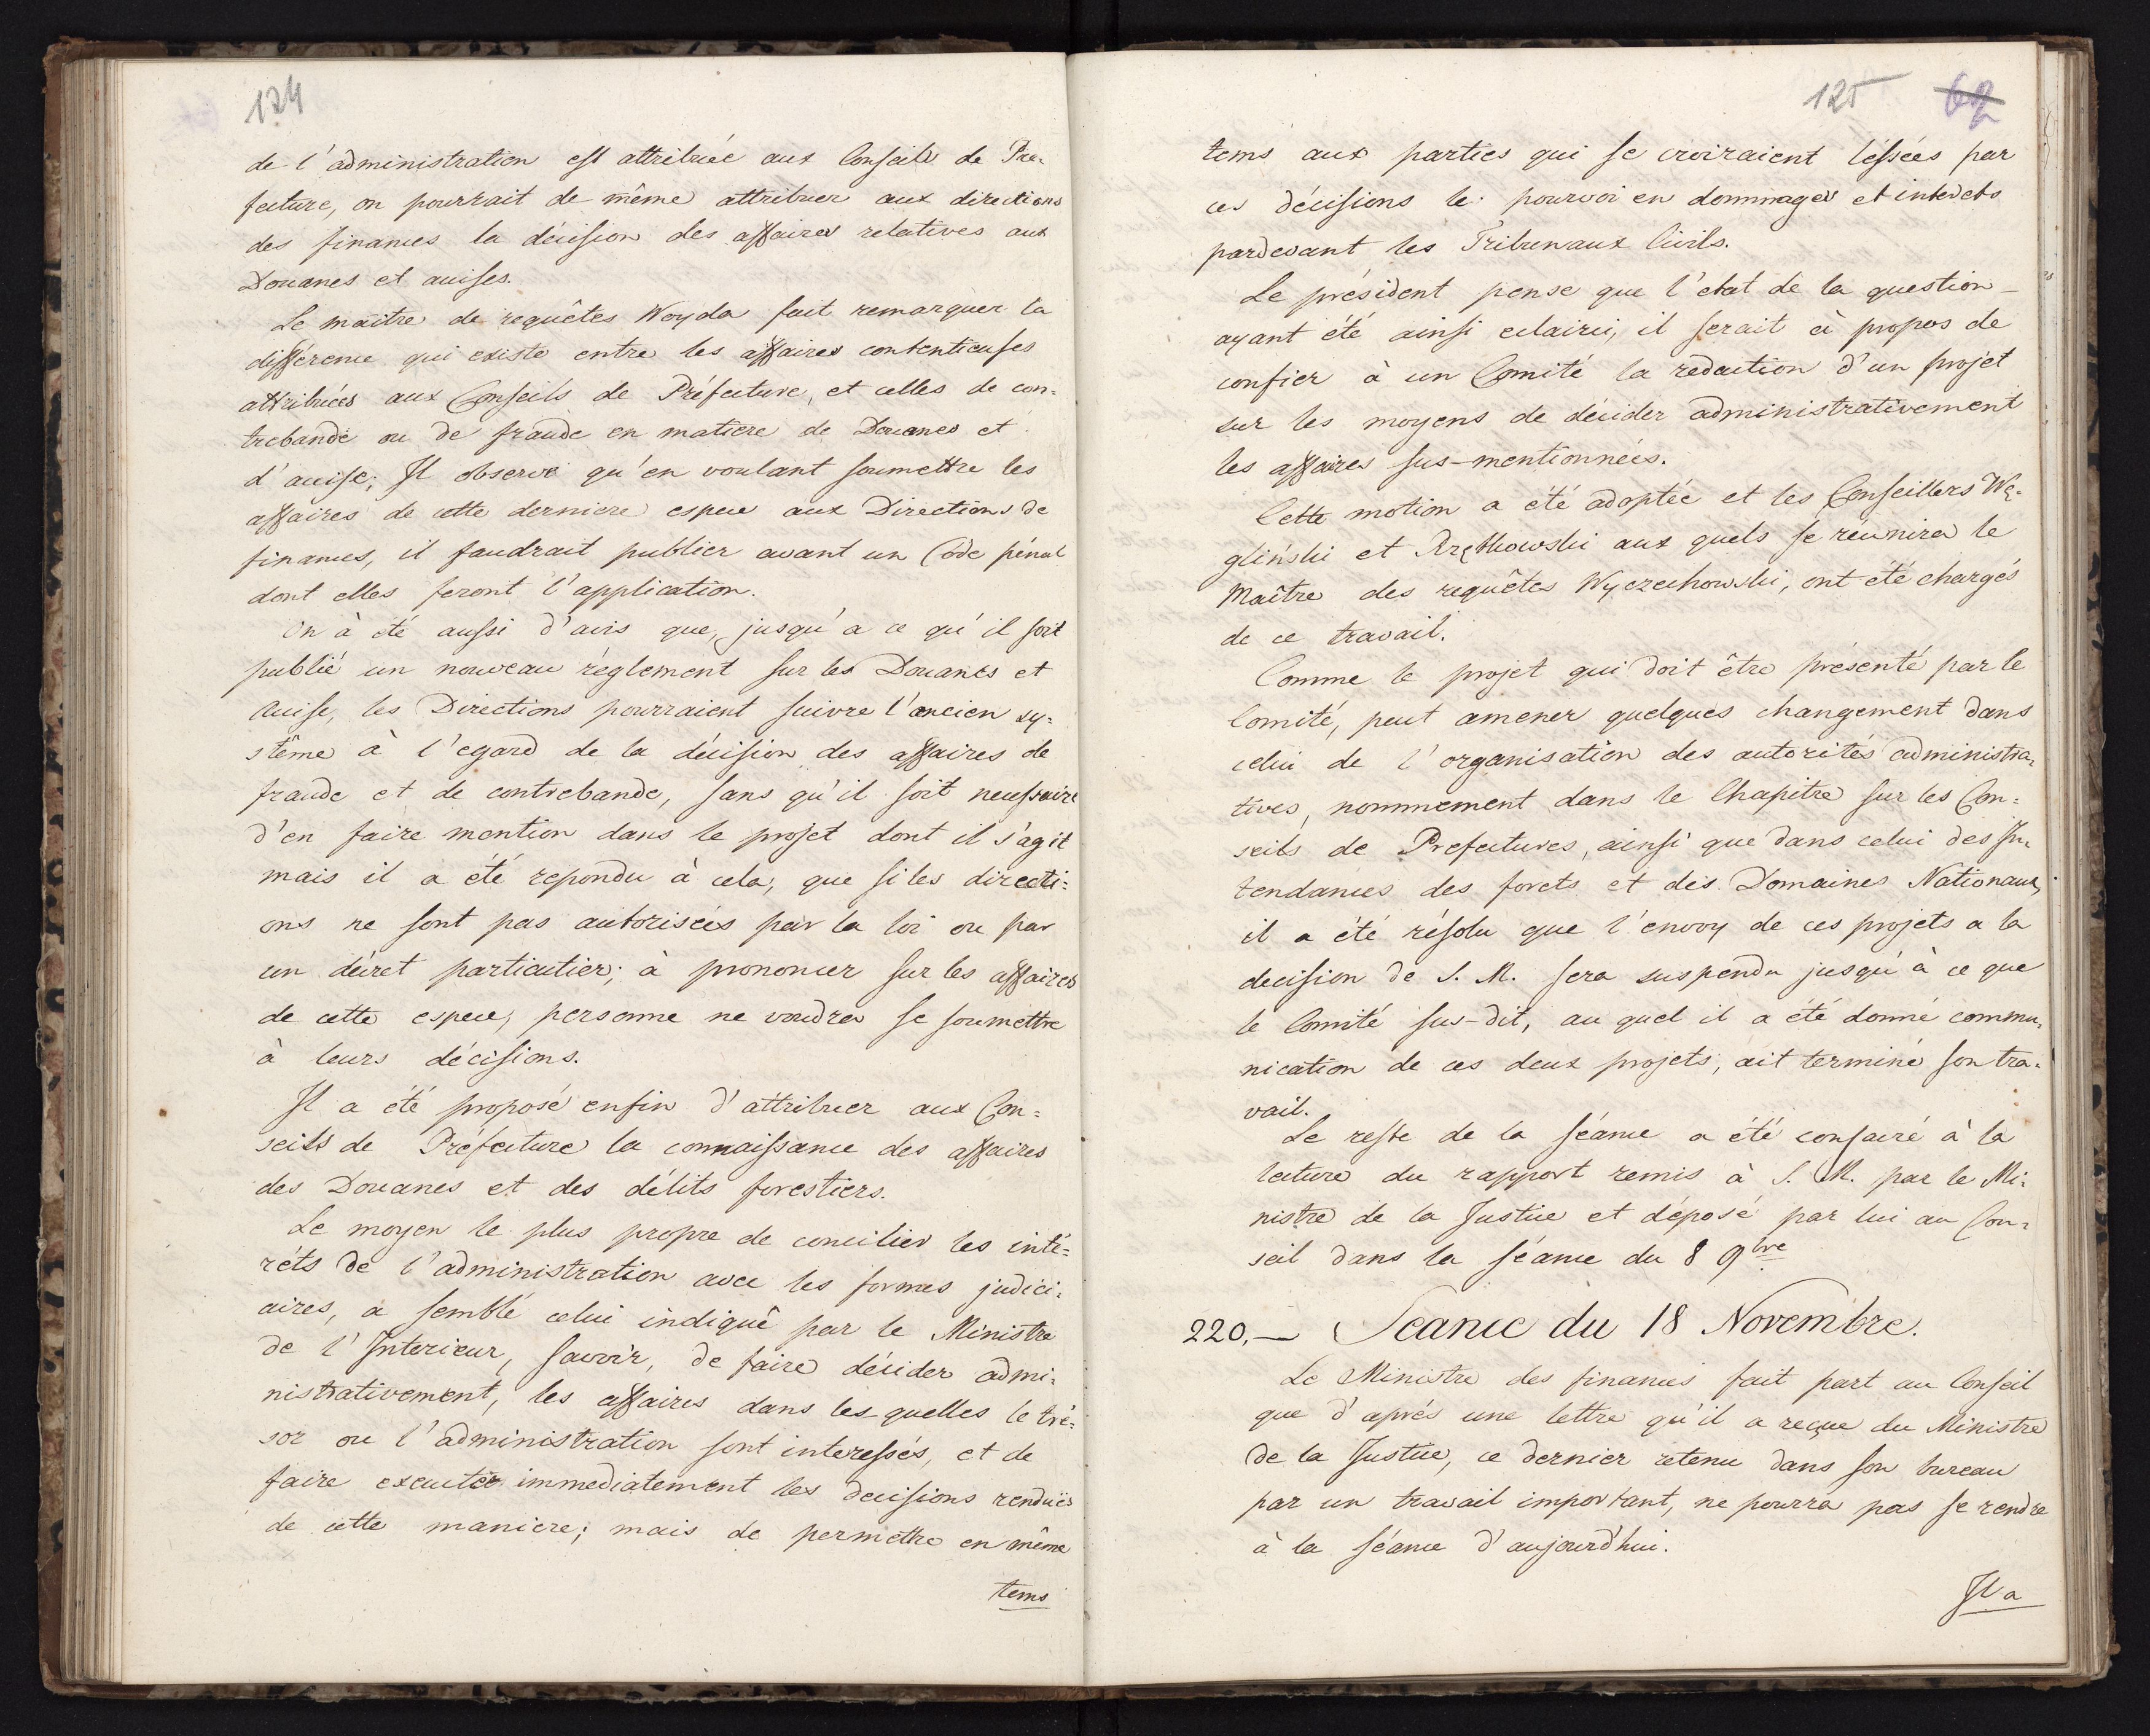 124
de l'administration est attribuée aux Conseils de Pre-
fecture, on pourrait de même attribuer aux directions
des finances la décision des affaires relatives aux
Douanes et accises.
Le maître de requêtes Woyda fait remarquer la
différence qui existe entre les affaires contentieuses
attribuées aux Conseils de Préfecture, et celles de con=
trebande ou de fraude en matiere de Douanes et
d'accise; Il observe qu'en voulant soumettre les
affaires de cette derniere espece aux Directions de
finances, il faudrait publier avant un Code pénal
dont elles feront l'application.
On à été aussi d'avis que, jusqu'a ce qu'il soit
publié un nouveau règlement sur les Douanes et
Accise, les Directions pourraient suivre l'ancien sy=
stême à l'egard de la décision des affaires de
fraude et de contrebande, sans qu'il soit necessaire
d'en faire mention dans le projet dont il s'agit
mais il a été repondu à cela, que si les directi=
ons ne sont pas autorisées par la loi ou par
un décret particulier; à prononcer sur les affaires
de cette espece, personne ne voudra se soumettre
à leurs décisions.
Il a été proposé enfin d'attribuer aux Con=
seils de Préfecture la connaissance des affaires
des Douanes et des délits forestiers.
Le moyen le plus propre de concilier les inté=
rêts de l'administration avec les formes judici=
aires, a semblé celui indiqué par le Ministre
de l'Interieur, savoir, de faire décider admi=
nistrativement, les affaires dans les quelles le tré=
sor ou l'administration sont interessés, et de
faire executer immediatement les decisions renduës
de cette maniere; mais de permettre en même
tems
125 62
tems aux parties qui se croiraient léssées par
ces décisions le pourvoi en dommages et interets
pardevant les Tribunaux Civils.
Le président pense que l'etat de la question
ayant été ainsi eclairci, il serait à propos de
confier à un Comité la redaction d'un projet
sur les moyens de décider administrativement
les affaires sus-mentionnées.
Cette motion a été adoptée et les Conseillers Wę-
gliński et Rzętkowski aux quels se réunira le
Maître des requêtes Wyczechowski, ont été chargés
de ce travail.
Comme le projet qui doit être présenté par le
Comité, peut amener quelques changement dans
celui de l'organisation des autorités administra=
tives, nommement dans le Chapitre sur les Con=
seils de Prefectures, ainsi que dans celui des In=
tendances des forets et des Domaines Nationaux,
il a été résolu que l'envoy de ces projets a la
decision de S. M. sera suspendu jusqu'à ce que
le Comité sus-dit, au quel il a été donné commu=
nication de ces deux projets, ait terminé son tra=
vail.
Le reste de la séance a été consacré à la
lecture du rapport remis à S. M. par le Mi=
nistre de la Justice et déposé par lui au Con=
seil dans la séance du 8 9bre
220. — Seance du 18 Novembre.
Le Ministre des finances fait part au Conseil
que d'après une lettre qu'il a reçue du Ministre
de la Justice, ce dernier retenu dans son bureau
par un travail important, ne pourra pas se rendre
à la séance d'aujourd'hui.
Il a